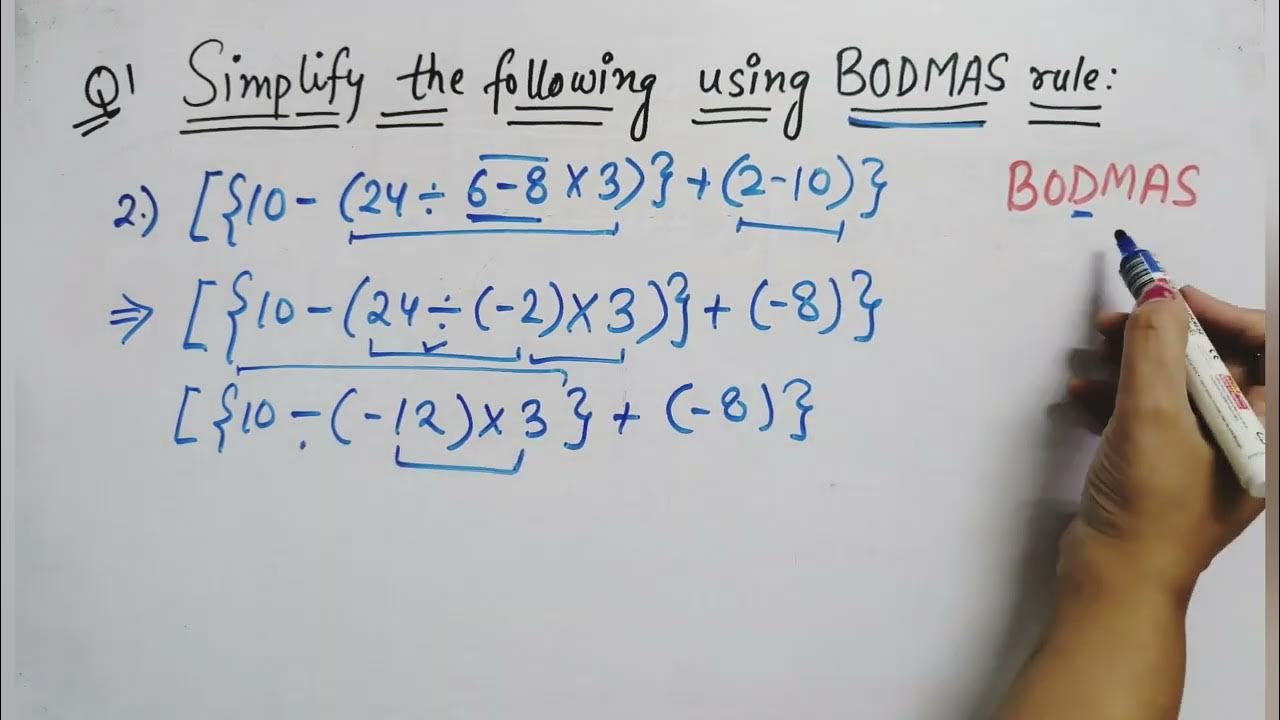 Q1 Simplify the following using BODMAS rule:
2.) [{10 - (24 ÷ 6-8 × 3)} + (2-10)}
BODMAS
⇒ [{10 - (24 ÷ (-2) × 3)} + (-8)}
[{10 - (-12) × 3} + (-8)}